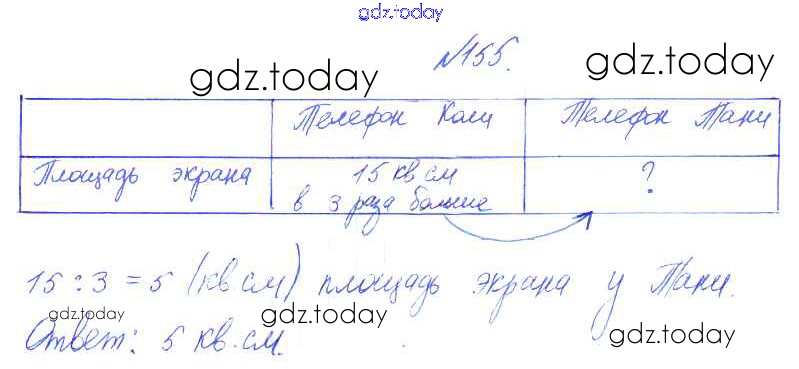 gdz.today
№155.
gdz.today gdz.today
Телефон Коли Телефон Тани
Площадь экрана 15 кв см ?
в 3 раза больше
15 : 3 = 5 (кв см) площадь экрана у Тани.
gdz.today gdz.today
Ответ: 5 кв. см.